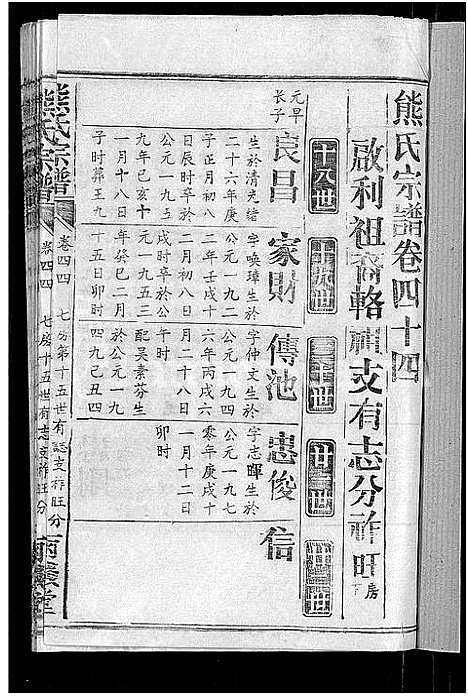 熊氏宗譜卷四十四
啟利祖裔輅
支有志分祚旺房下
十八世
廿世
廿二世
元早長子
良昌
生於清光緒
二十六年庚
子正月初八
日辰時卒於
公元一九五
九年己亥十
一月十八日
子時葬王九
家財
字喚璋生於
公元一九二
二年壬戌十
二月初八日
戌時卒於公
元一九五三
年癸巳二月
十五日卯時
傳池
字仲文生於
公元一九四
六年丙戌六
月二十八日
午時
配吳素芬生
於公元一九
四九己丑四
忠俊
字志暉生於
公元一九七
零年庚戌十
一月十二日
卯時
信
熊氏宗譜
卷四四
七房第十五世有誌支祚旺分
熊氏宗譜
卷四四
七房十五世有志支祚旺分